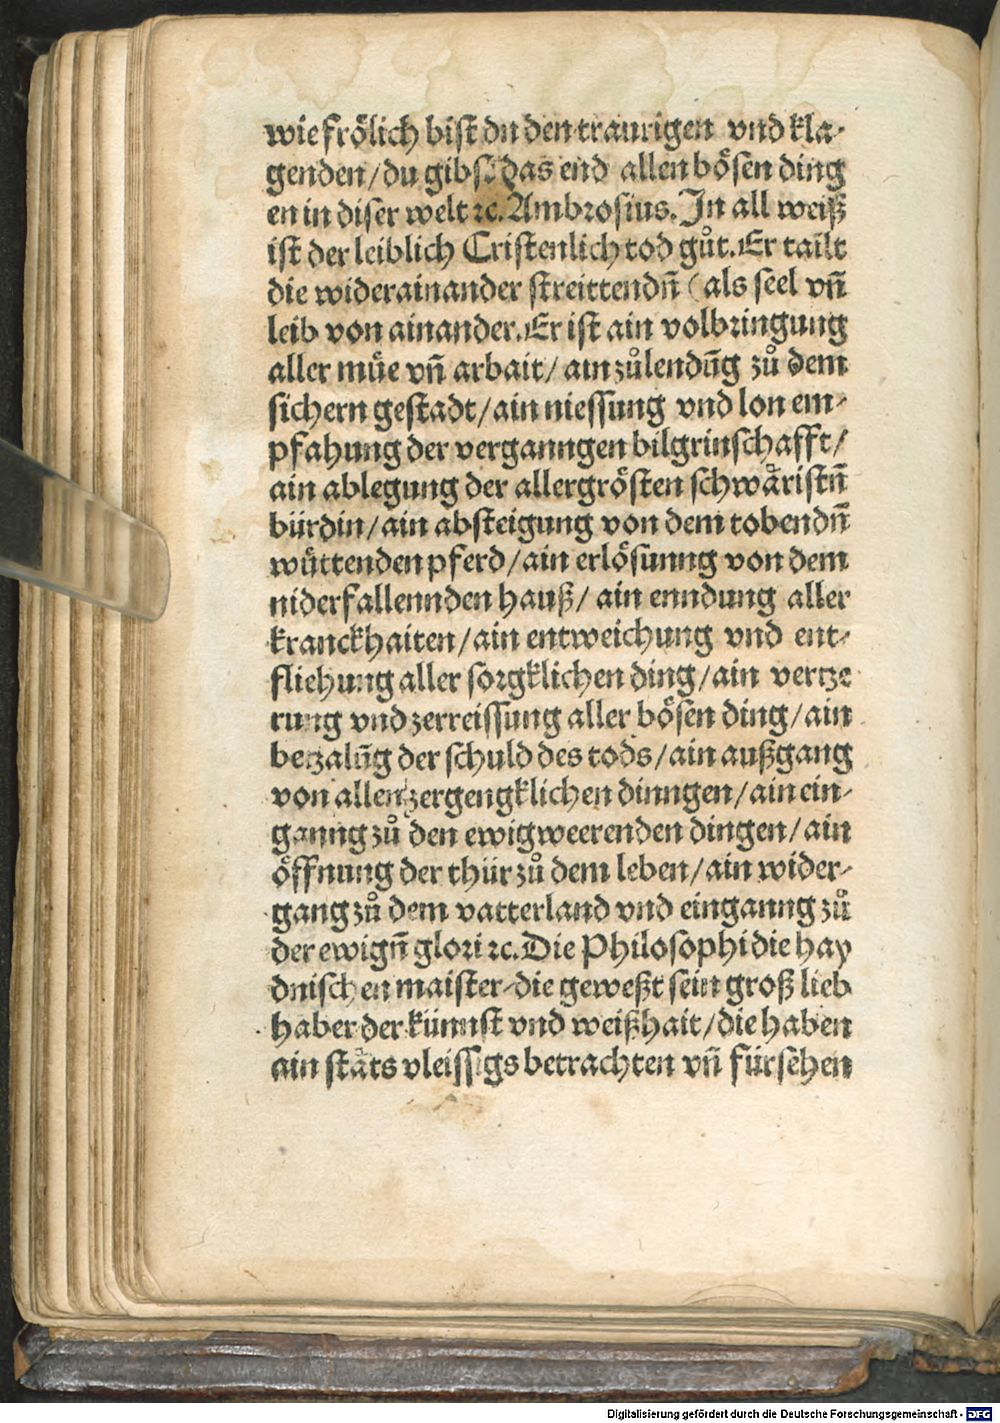 wie frölich bist du den traurigen vnd kla-
genden/du gibst das end allen bösen ding
en in diser welt ⁊c. Ambrosius. In all weiß
ist der leiblich Cristenlich tod gůt. Er tailt
die widerainander streittendn̄ (als seel vn̄
leib von ainander. Er ist ain volbringung
aller müe vn̄ arbait/ ain zůlendūg zů dem
sichern gestadt/ain niessung vnd lon em-
pfahung der verganngen bilgrinschafft/
ain ablegung der allergrösten schwäristn̄
bürdin/ain absteigung von dem tobendn̄
wüttenden pferd/ain erlösunng von dem
niderfallennden hauß/ ain enndung aller
kranckhaiten/ain entweichung vnd ent-
fliehung aller sorgklichen ding/ain vertze
rung vnd zerreissung aller bösen ding/ain
betzalūg der schuld des tods/ain außgang
von allen zergengklichen dinngen/ain ein-
ganng zů den ewigweerenden dingen/ain
öffnung der thür zů dem leben/ain wider-
gang zů dem vatterland vnd einganng zů
der ewign̄ glori ⁊c. Die Philosophi die hay
dnischen maister die geweßt sein groß lieb
haber der künnst vnd weißhait/die haben
ain stäts vleissigs betrachten vn̄ fürsehen
Digitalisierung gefördert durch die Deutsche Forschungsgemeinschaft - DFG